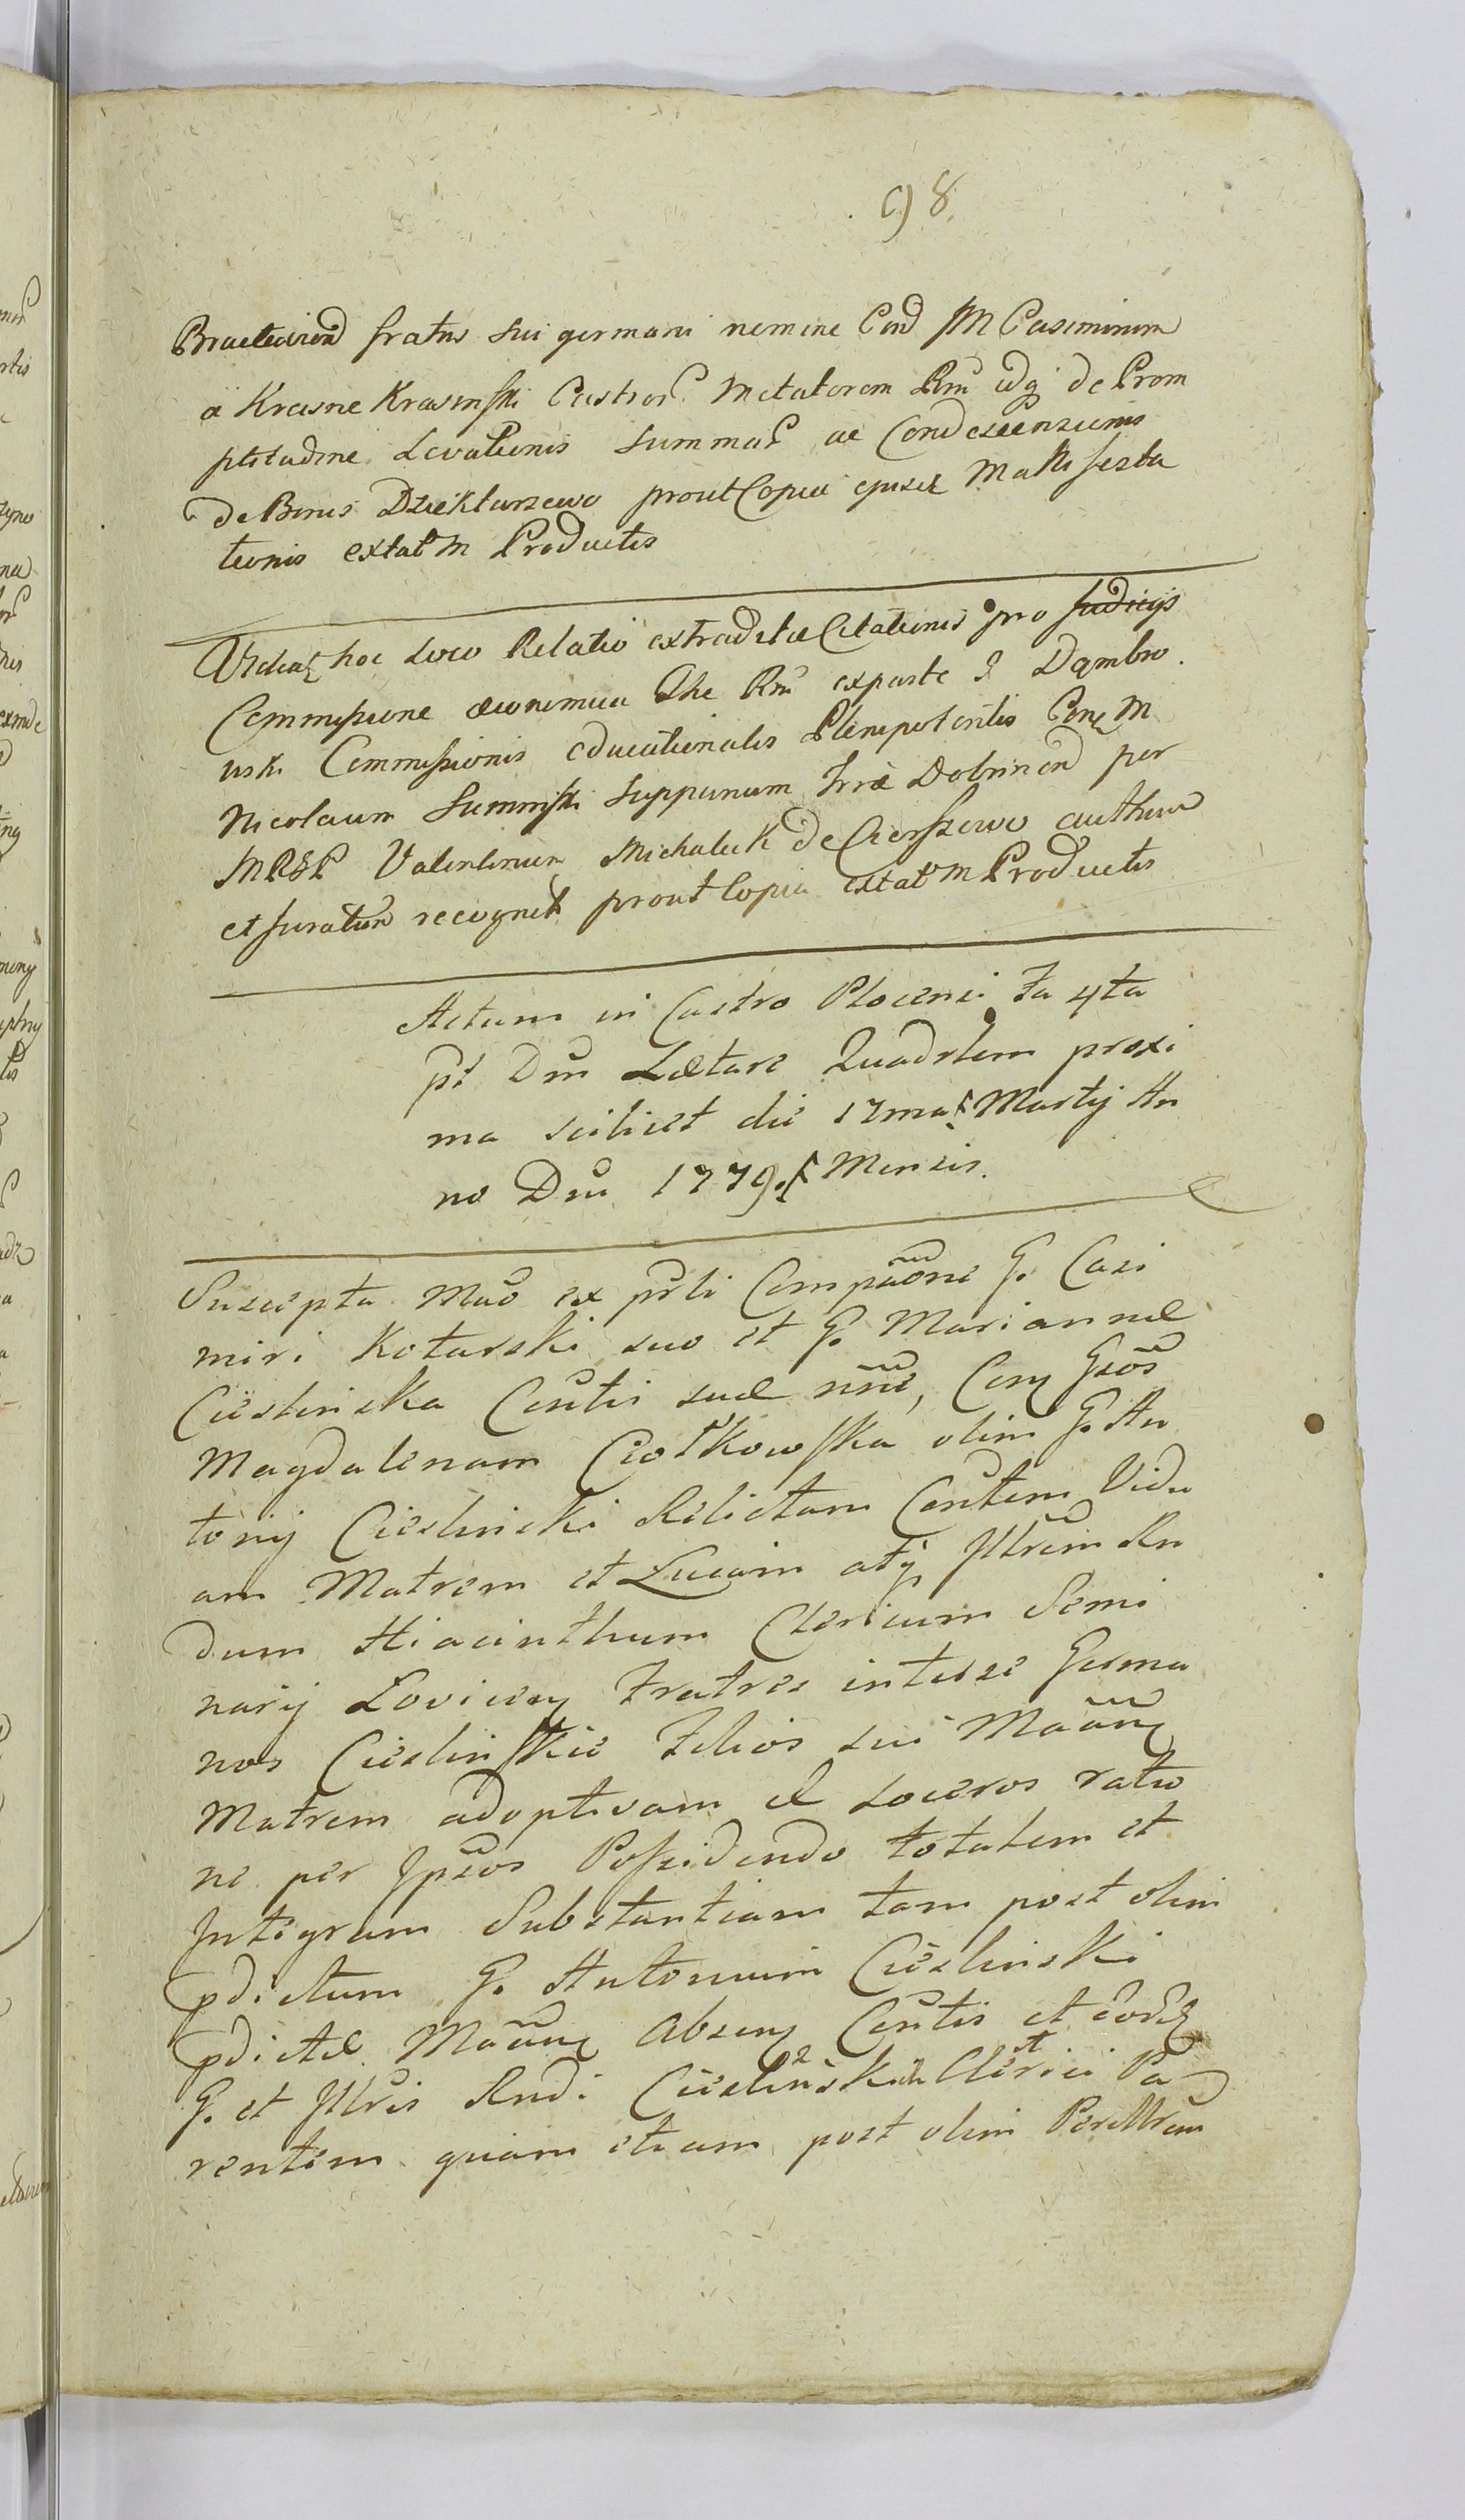 98
fratris sui germani nomine Cond M Casimirum
a Krasne Krasinski Castror Metatorem Rni idq de Prom
ptitudine Levationis summar ac Condescensionis
de Bonis Dziektarzewo prout Copia ejusd Manifesta
tionis extat in Productis
Videat hoc Loco Relatio extraditæ Citationis pro Judicijs
Commissione œconomica The Rni ex parte G Dąmbro
uski Commissionis educationalis Plenipotentis Conq M
Nicolaum Suminski Suppanum Trræ Dobrinen per
MRSR Valentinum Michalek de Cierszewo authum
et Juratum recognit prout Copia extat in Productis
Actum in Castro Plocensi Fa 4ta
pt Dni Lætare Quadrlem proxi
ma scilicet die 17ma Martij An
no Dni 1779. Mensis.
Suscepta Mao ex prli Compaone G. Casi
miri Kotarski suo et G. Mariannæ
Ciëslinska Contis suæ nne, Conq Gsos
Magdalenam Ciołkowska olim G. An
tonij Cieslinski Relictam Contem Vidu
am Matrem et Lucam atq Illrem Rn
dum Hiacinthum Clericum Semi
narij Lovicen Fratres inter se Germa
nos Cieslinskie Filios sui Maang
Matrem adoptivam et Soceros ratio
ne per Ipsos Possidendo totalem et
Integram Substantiam tam post olim
pdictum G. Antonium Ciëslinski
pdictæ Maang Absenq Contis et eord
G. et Illris Rndi Ciëslinski Clerici Pa
rentem quam etiam post olim PerIllrem